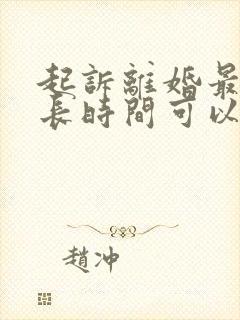 起訴離婚最
長時間可以
趙沖